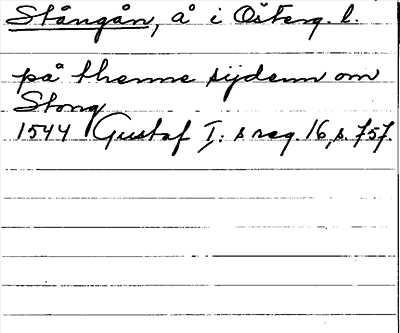 Stångån, å i Österg. l.
på thenne sijdenn om
Stong
1544 Gustaf I:s reg. 16, s. 757.